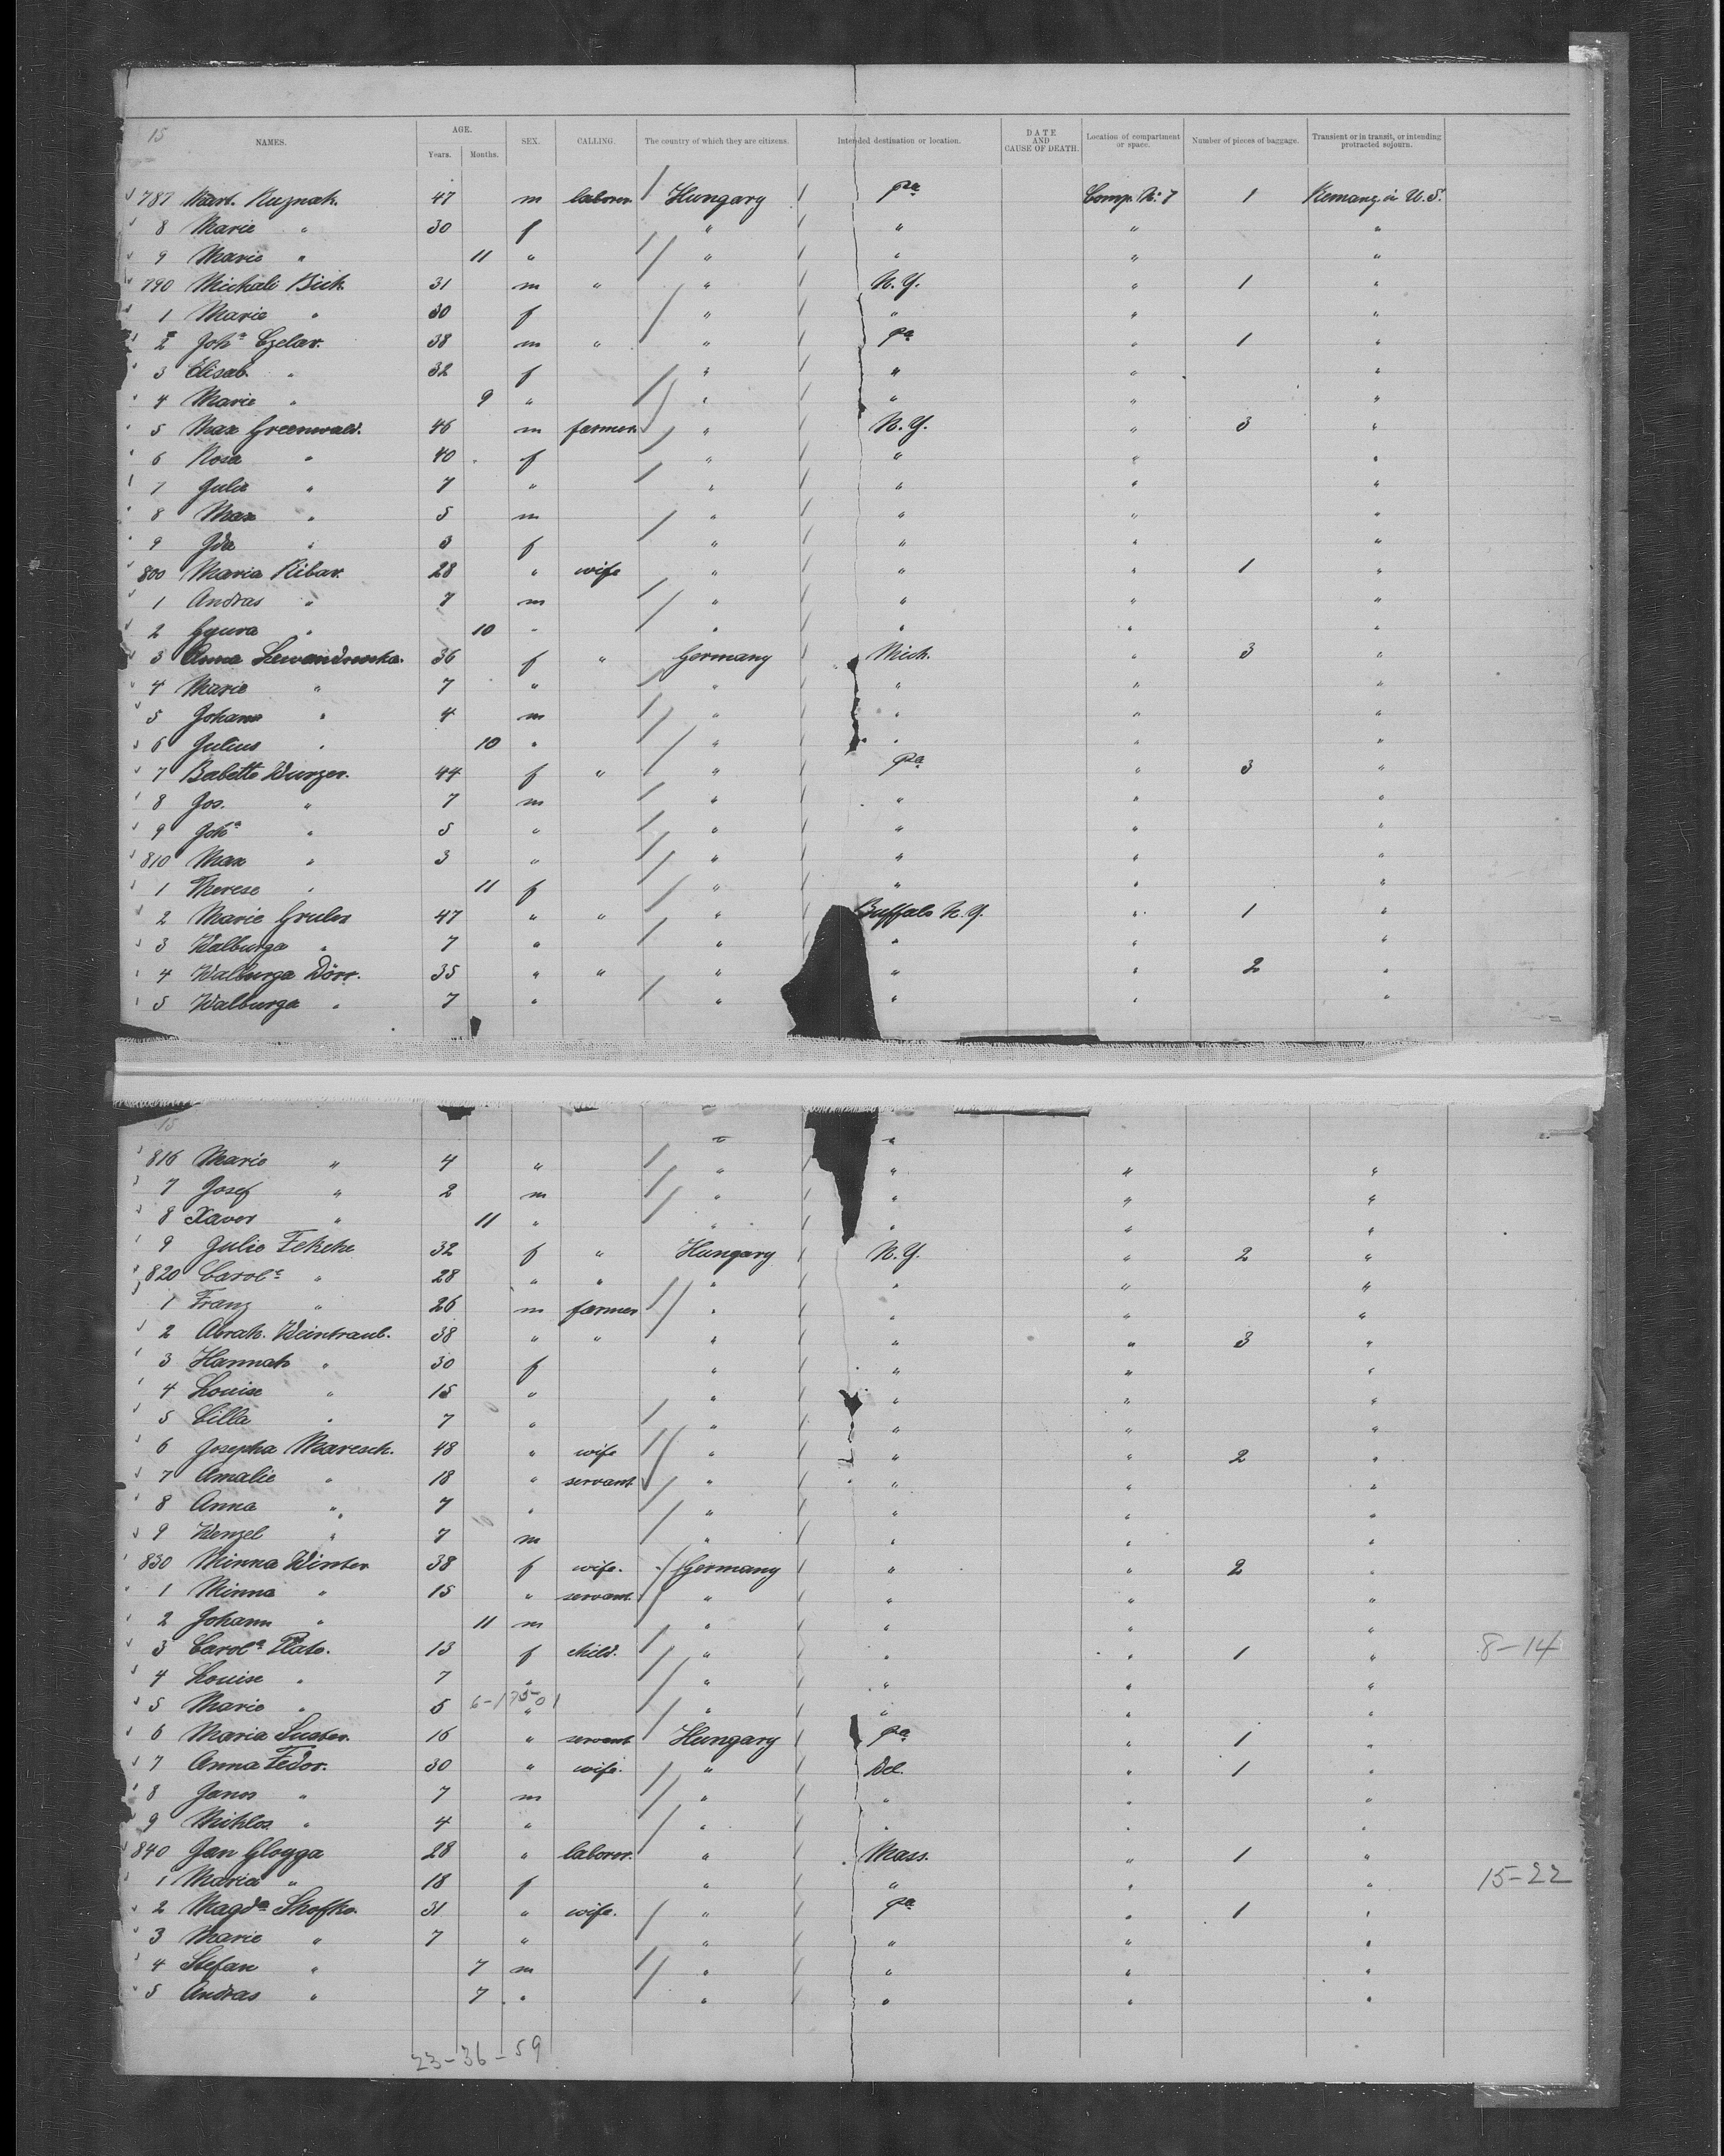 15
NAMES. AGE. Years. Months. SEX. CALLING. The country of which they are citizens. Intended destination or location. DATE AND CAUSE OF DEATH. Location of compartment or space. Number of pieces of baggage. Transient or in transit, or intending protracted sojourn.
787 Mart. Kuznak. 47 m laborer Hungary Pa Comp. No: 7 1 Remang. in U.S.
8 Marie " 30 f " " " "
9 Marie " 11 " " " " "
790 Michale Bick 31 m " " N.Y. " 1 "
1 Marie " 30 f " " " "
2 Joha Czelar. 38 m " " Pa " 1 "
3 Elisab. " 32 f " " " "
4 Marie " 9 " " " " "
5 Max Greenwald. 46 m farmer " N.Y. " 3 "
6 Rosa " 40 f " " " "
7 Julie " 7 " " " " "
8 Max " 5 m " " " "
9 Ida " 3 f " " " "
800 Maria Ribar. 28 " wife " " " 1 "
1 Andras " 7 m " " " "
2 Gyura " 10 " " " " "
3 Anna Lewandowska. 36 f " Germany Mich. " 3 "
4 Marie " 7 " " " " "
5 Johann " 4 m " " " "
6 Julius " 10 " " " " "
7 Babette Wurzer. 44 f " " Pa " 3 "
8 Jos. " 7 m " " " "
9 Joha " 5 " " " " "
810 Max " 3 " " " " "
1 Therese " 11 f " " " "
2 Marie Gruler 47 " " " Buffalo N.Y. " 1 "
3 Walburga " 7 " " " " "
4 Walburga Dörr. 35 " " " " " 2 "
5 Walburga " 7 " " " " "
15
816 Marie " 4 " " " " "
7 Josef " 2 m " " " "
8 Xaver " 11 " " " " "
9 Julie Fekete 32 f " Hungary N.Y. " 2 "
820 Carola " 28 " " " " " "
1 Franz " 26 m farmer " " " "
2 Abrah. Weintraub. 38 " " " " " 3 "
3 Hannah " 30 f " " " "
4 Louise " 15 " " " " "
5 Cilla " 7 " " " " "
6 Josepha Maresch. 48 " wife " " " 2 "
7 Amalie " 18 " servant " " " "
8 Anna " 7 " " " " "
9 Wenzel " 7 m " " " "
830 Minna Winter 38 f wife. Germany " " 2 "
1 Minna " 15 " servant " " " "
2 Johann " 11 m " " " "
3 Carola Plato. 13 f child. " " " 1 " 8-14
4 Louise " 7 " " " " "
5 Marie " 5 " " " " "
6 Maria Suster. 16 " servant Hungary Pa " 1 "
7 Anna Fedor. 30 " wife. " Del. " 1 "
8 Janos " 7 m " " " "
9 Miklos " 4 " " " " "
840 Jan Glogga 28 " laborer. " Mass. " 1 "
1 Maria " 18 f " " " " 15-22
2 Magda Skofko. 31 " wife. " Pa " 1 "
3 Marie " 7 " " " " "
4 Stefan " 7 m " " " "
5 Andras " 7 " " " " "
23-36-59